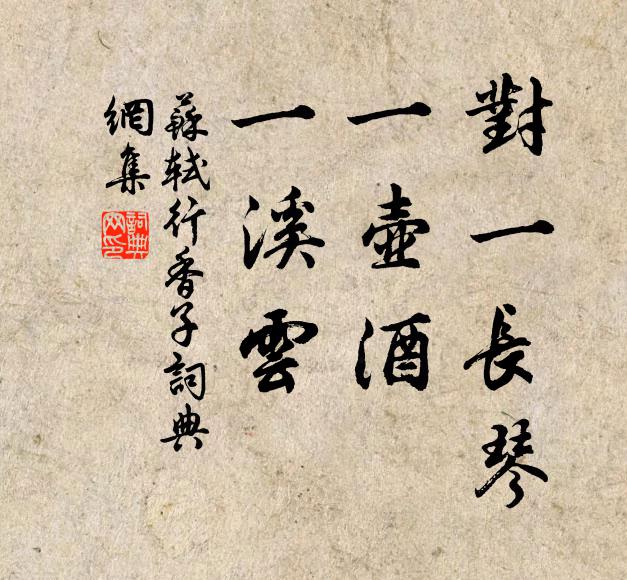 對一長琴
一壺酒
一溪雲
蘇軾行香子詞典
網集
詞典网印